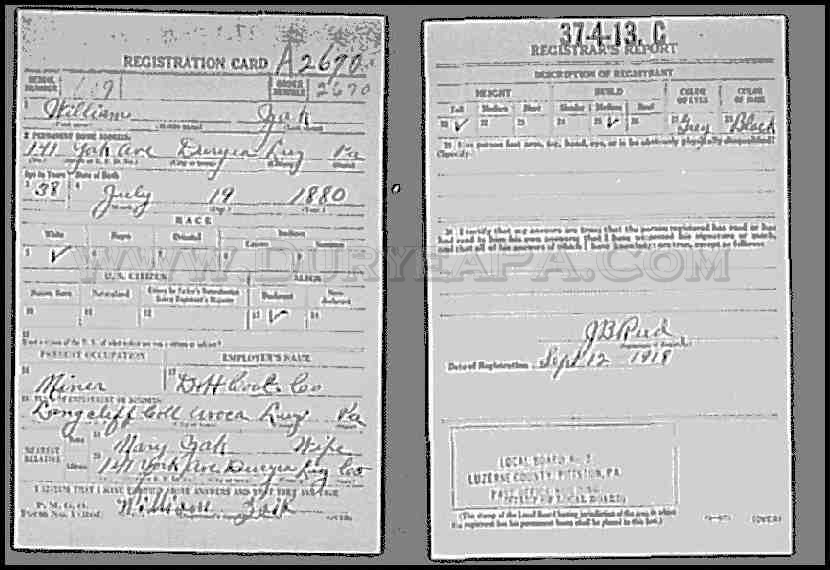 REGISTRATION CARD A2690
SERIAL NUMBER 119 ORDER NUMBER 2690
1 William Zak
2 PERMANENT HOME ADDRESS:
141 York Ave Duryea Luz Pa
Age in Years Date of Birth
3 38 4 July 19 1880
RACE
White Negro Oriental Indian
5 ✓ 6 7 8 9
U.S. CITIZEN ALIEN
Native Born Naturalized Citizen by Father's Naturalization Before Registrant's Majority Declarant Non-declarant
10 11 12 13 ✓ 14
15
PRESENT OCCUPATION EMPLOYER'S NAME
16 Miner 17 D&H Coal Co
18 PLACE OF EMPLOYMENT OR BUSINESS:
Longcliff Coll Avoca Luz Pa
NEAREST RELATIVE Name 19 Mary Zak Wife
Address 20 141 York Ave Duryea Luz Co
I AFFIRM THAT I HAVE VERIFIED ABOVE ANSWERS AND THAT THEY ARE TRUE
P. M. G. O.
Form No. 1 (Red) William Zak
37-4-13. C
REGISTRAR'S REPORT
DESCRIPTION OF REGISTRANT
HEIGHT BUILD COLOR OF EYES COLOR OF HAIR
Tall Medium Short Slender Medium Stout
21 ✓ 22 23 24 25 ✓ 26 27 Grey 28 Black
29 Has person lost arm, leg, hand, eye, or is he obviously physically disqualified?
(Specify.)
30 I certify that my answers are true; that the person registered has read or has
had read to him his own answers; that I have witnessed his signature or mark,
and that all of his answers of which I have knowledge are true, except as follows:
WWW.DURYEAPA.COM
J B Reed
Date of Registration Sept 12 1918
LOCAL BOARD No. 2
LUZERNE COUNTY, PITTSTON, PA.
(The stamp of the Local Board having jurisdiction of the area in which
the registrant has his permanent home shall be placed in this box.)
(OVER)